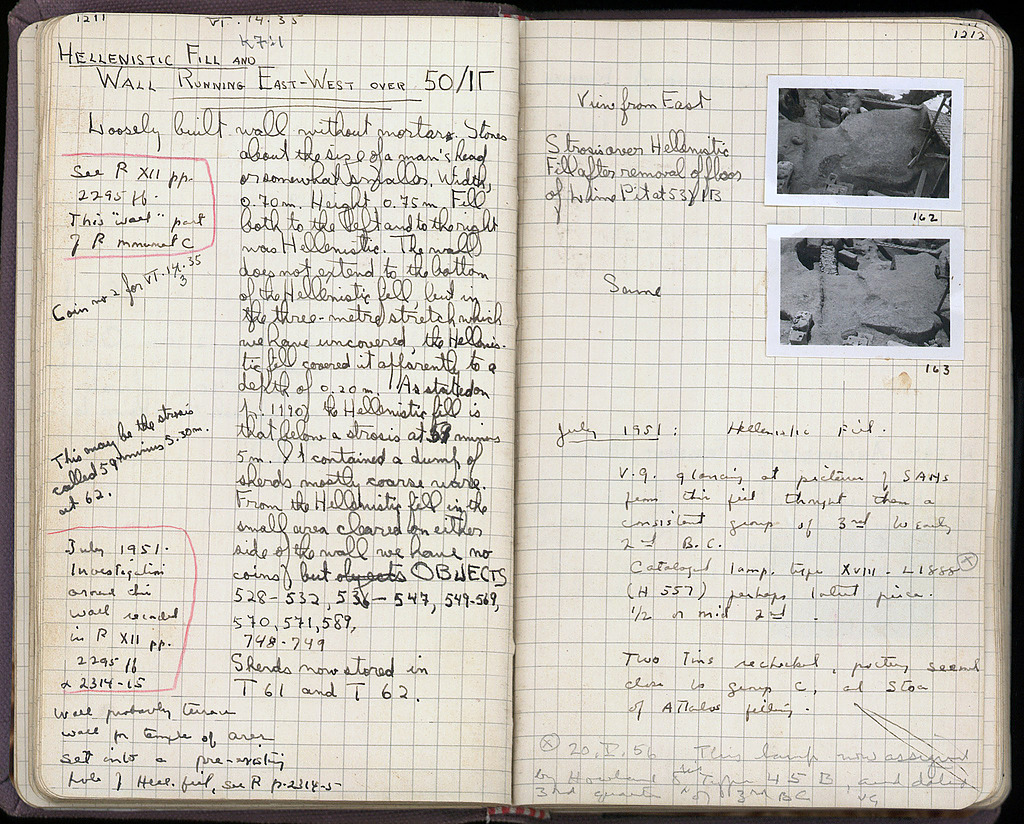 1211
VI.14.35
HELLENISTIC FILL AND
WALL RUNNING EAST-WEST OVER 50/ΙΓ
Loosely built wall without mortar. Stones
about the size of a man's head
or somewhat smaller. Width,
0.70 m. Height, 0.75 m. Fill
both to the left and to the right
was Hellenistic. The wall
does not extend to the bottom
of the Hellenistic fill, but in
the three-metre stretch which
we have uncovered, the Hellenis-
tic fill covered it apparently to a
depth of 0.20 m. As stated on
p. 1190, the Hellenistic fill is
that below a strosis at 59 minus
5 m. It contained a dump of
sherds mostly coarse ware.
From the Hellenistic fill in the
small area cleared on either
side of the wall we have no
coins, but objects OBJECTS
528-532, 536-547, 549-569,
570, 571, 589,
748-749
Sherds now stored in
T 61 and T 62.
See R XII pp.
2295 ff.
This "wall" part
of R monument C
Coin no 2 for VI.14.35
3
This may be the strosis
called 59 minus 5.30 m.
at 62.
July 1951.
Investigation
around this
wall recorded
in R XII pp.
2295 ff
& 2314-15
Wall probably terrace
wall for temple of Ares
set into a pre-existing
hole of Hell. fill, see R p. 2314-5
1212
View from East
Strosis over Hellenistic
Fill after removal of floor
of Lime Pit at 53/ΙΒ
162
Same
163
July 1951: Hellenistic Fill.
V.G. glancing at pictures of SAMS
from this fill thought them a
consistent group of 3rd to early
2nd B.C.
Catalogued lamp, type XVIII - L1888 (x)
(H 557) perhaps latest piece.
1/2 or mid 2nd.
Two Tins rechecked, pottery seemed
close to group C, at Stoa
of Attalos filling.
(x) 20.V.56 This lamp now assigned
by Howland to Type 45 B, and dated
3rd quarter of 3rd BC VG